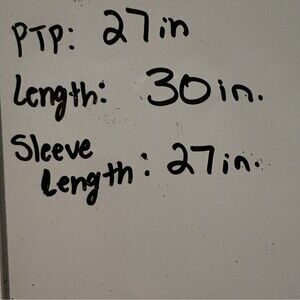 PTP: 27in
Length: 30in.
Sleeve
Length: 27in.